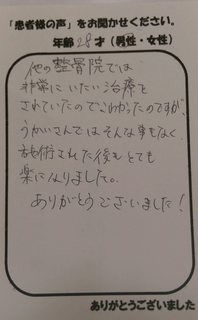 「患者様の声」をお聞かせください。
年齢 28才（男性・女性）
他の整骨院では
非常にいたい治療を
されていたのでこわかったのですが、
うかいさんではそんな事もなく
施術された後もとても
楽になりました。
ありがとうございました！
ありがとうございました